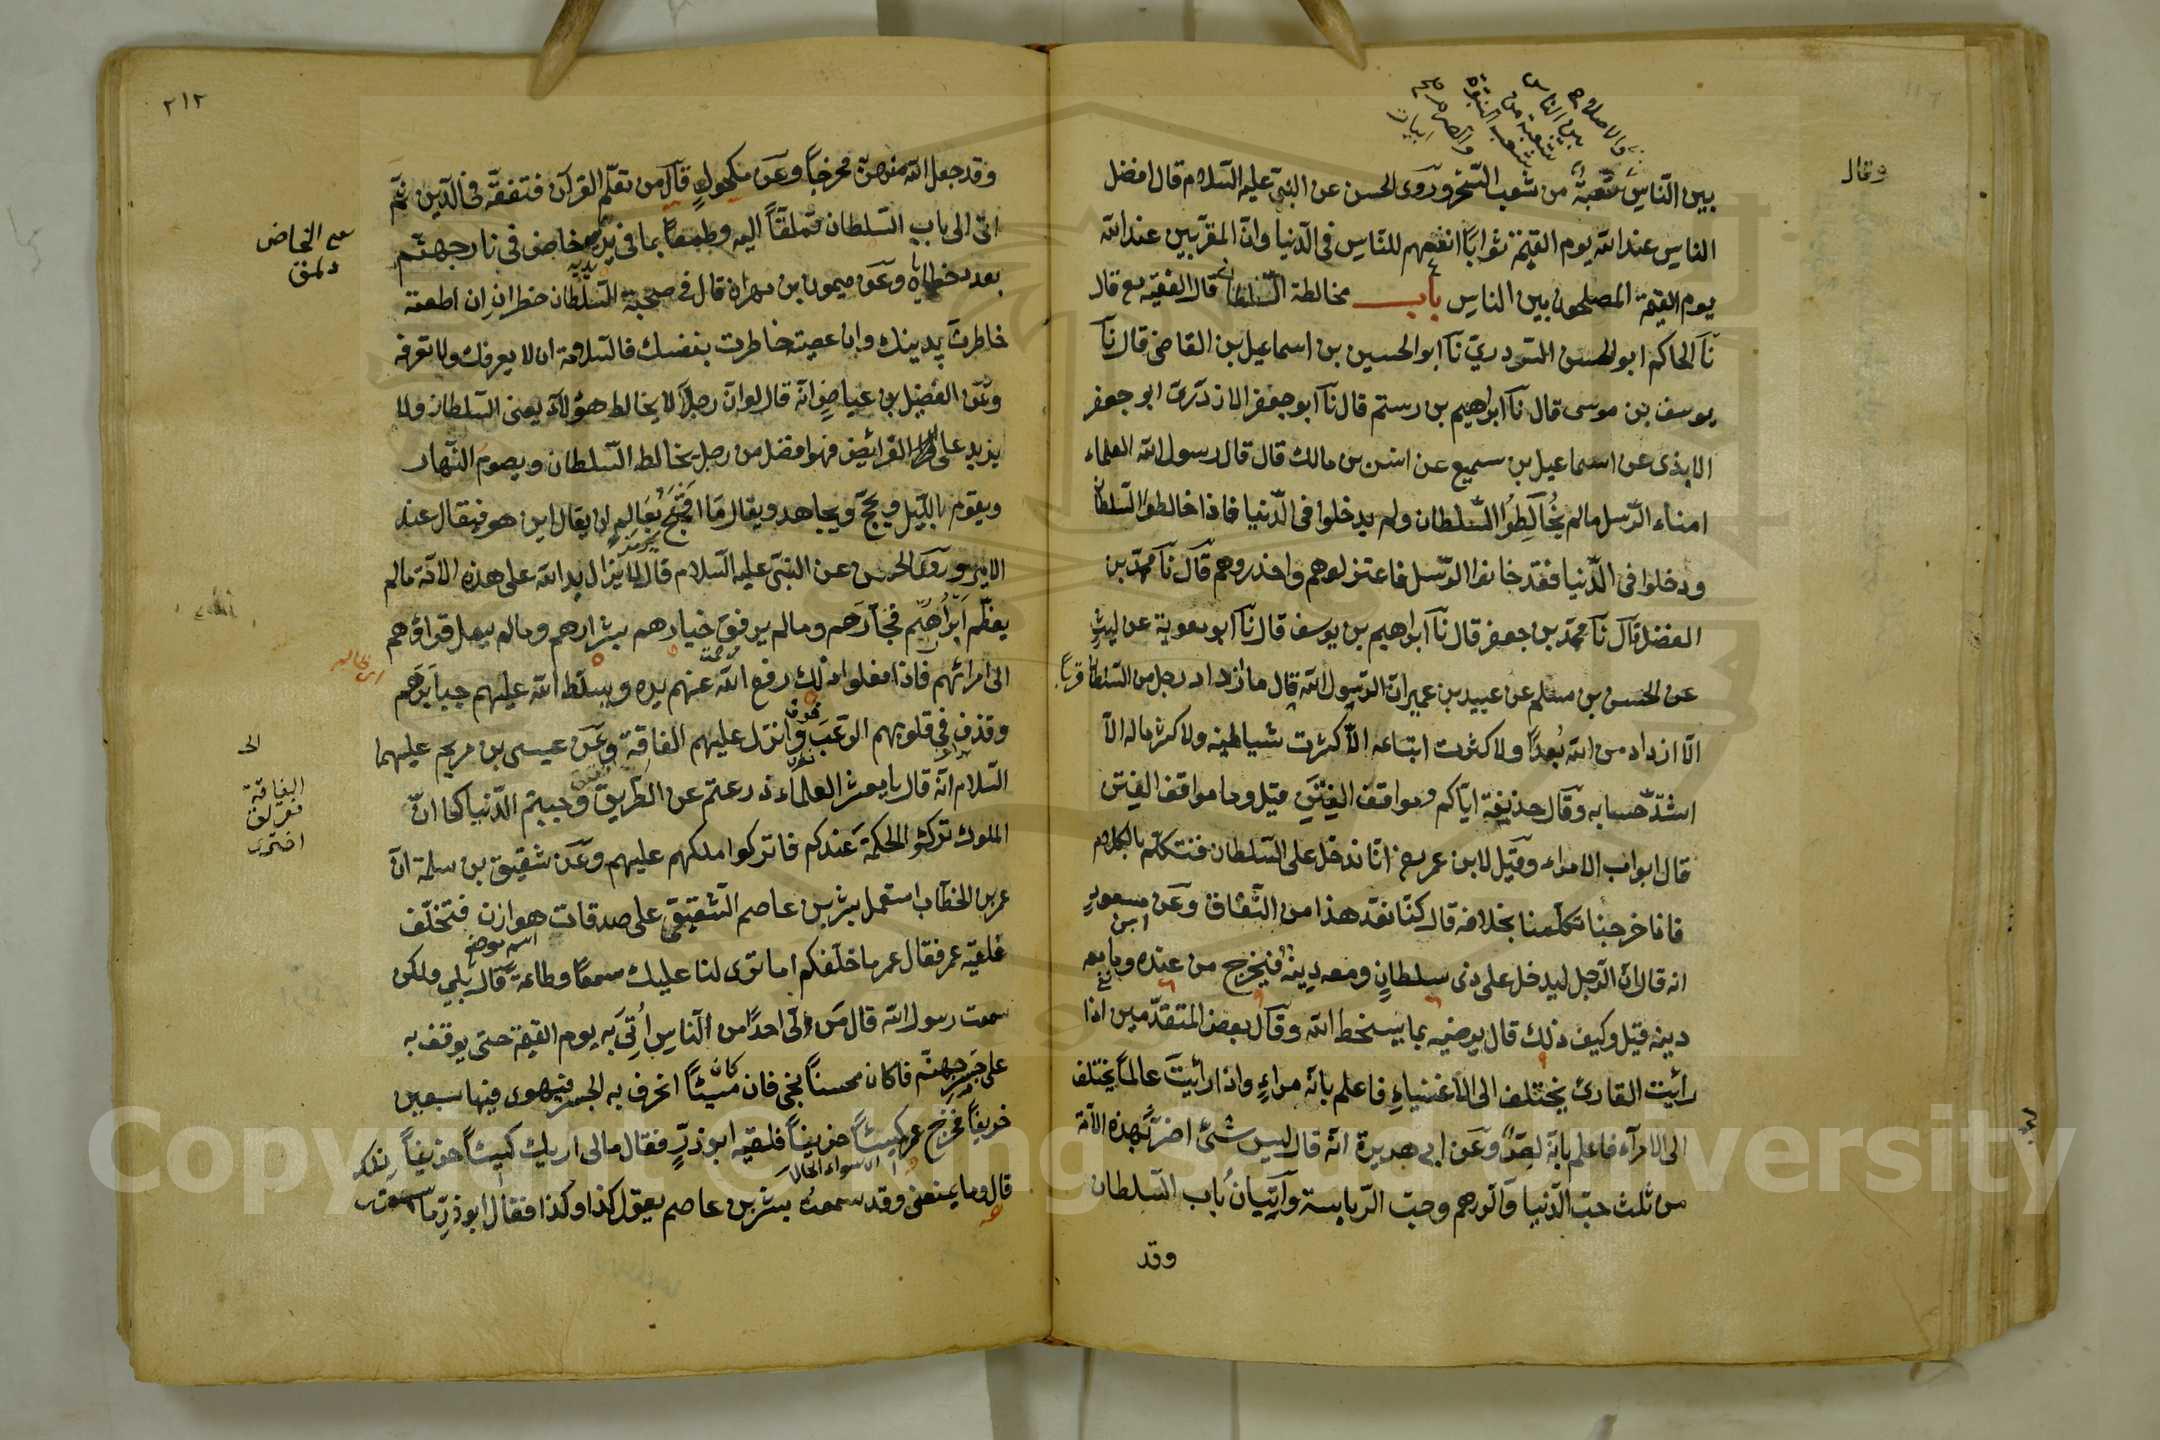 والاصلاح
بين الناس
شعبة من
شعب النبوة
والصرم
وقال
بين النّاس شعبة من شعب السّحر وروى الحسن عن النبىّ عليه السّلام قال افضل
الناس عند الله يوم القيمة ثوابًا انفعهم للنّاس فى الدّنيا وانّ المقرّبين عند الله
يوم القيمة المصلحون بين الناس باب مخالطة السّلطان قال الفقيه رح قال
نا الحاكم ابو الحسن السّردرىّ نا ابو الحسين بن اسماعيل بن القاضى قال نا
يوسف بن موسى قال نا ابراهيم بن رستم قال نا ابو جعفر ابو جعفر
عن اسماعيل بن سميع عن انس بن مالك قال قال رسول الله العلماء
امناء الرّسل ما لم يُخَالِطُوا السّلطان ولم يدخلوا فى الدّنيا فاذا خالطوا السّلطان
ودخلوا فى الدّنيا فقد خانوا الرّسل فاعتزلوهم واحذروهم قال نا محمّد بن
الفضل قال نا محمّد بن جعفر قال نا ابراهيم بن يوسف قال نا ابو معوية عن ليث
عن الحسن بن مسلم عن عبيد بن عمير انّ الرسول الله قال ما ازداد رجل من السّلطان قربًا
الّا ازداد من الله بُعدًا ولا كثرت اتباعه الّا كثرت شياطينه ولا كثر ماله الّا
اشتدّ حسابه وقال حذيفة ايّاكم ومواقف الفِتَنِ قيل وما مواقف الفتن
قال ابواب الامراء وقيل لابن عمر رضى انّا ندخل على السّلطان فنتكلم بالكلام
فاذا خرجنا تكلّمنا بخلافه قال كنّا نعدّ هذا من النّفاق وعن ابن مسعود
انه قال ان الرّجل ليدخل على ذى سلطان ومعه دينه فيخرج من عنده وما معه
دينه قيل وكيف ذلك قال يرضيه بما يسخط الله وقال بعض المتقدّمين اذا
رائيت القارئ يختلف الى الاغنياء فاعلم بانّه مراءٍ واذا رائيت عالمًا يختلف
الى الامرآء فاعلم بانّه لصّ وعن ابى هريرة انّه قال ليس شئ اضرّ بهذه الامّة
من ثلث حبّ الدّنيا والدّرهم وحبّ الرّياسة واتيان باب السّلطان
وقد
٢١٢
وقد جعل الله منهنّ مخرجًا وعن مكحولٍ قال من تعلّم القرآن فتفقّه فى الدّين ثمّ
اتى الى باب السّلطان تملّقًا اليه وطمعًا بما فى يديه خاض فى نار جهنّم
بعدد خطاياه وعن ميمون بن مهران قال فى صحبة السّلطان خطران ان اطعته
خاطرت بدينك وان عصيته خاطرت بنفسك فالسّلامة ان لا يعرفك ولا تعرفه
وعن الفضيل بن عياضٍ انّه قال لو انّ رجلًا لا يخالط هؤلاء يعنى السّلطان ولا
يزيد على الفرائض فهو افضل من رجل يخالط السّلطان ويصوم النّهار
ويقوم باللّيل ويحجّ ويجاهد ويقال مَا اَقْبَحَ بعالمٍ ان يقال اين هو فيقال عند
الامير وروى الحسن عن النبىّ عليه السّلام قال لا يزال يد الله على هذه الامّة ما لم
يعظّم اَبْرارُهم فجّارَهم وما لم يرفق خيارهم بشرارهم وما لم يمل قراؤهم
الى امرائهم فاذا فعلوا ذلك رفع الله عنهم يده ويسلّط الله عليهم جبابرَهم
وقذف فى قلوبهم الرّعبَ وانزل عليهم الفاقة وعن عيسى بن مريم عليهما
السّلام انّه قال يا معشر العلماء عن الطّريق وحببتم الدّنيا كما انّ
الملوك تركوا الحكمة عندكم فاتركوا ملكهم عليهم وعن شقيق بن سلمة انّ
عمر بن الخطّاب استعمل بشر بن عاصم الشّقيقى على صدقات هوازن فتخلّف
اسم موضع
فلقيه عمر فقال عمر ما خلّفكم اما ترى لنا عليك سمعًا وطاعة قال بلى ولكن
سمعت رسول الله قال مَن ولّى احدًا من النّاسِ اُتِىَ به يوم القيمة حتى يوقف به
على جسر جهنّم فاكان محسنًا نجى فان كان مسيئًا انخرف به الجسر فيهوى فيها سبعين
خريفًا فخرج عمر كئيبًا حزينًا فلقيه ابو ذرّ فقال مالى اريك كئيبًا حزينًا
قال وما يمنعنى وقد سمعت بشر بن عاصم يقول كذا وكذا فقال ابو ذرّ ما سمعت
الى
الفاقة
Copyright © King Saud University